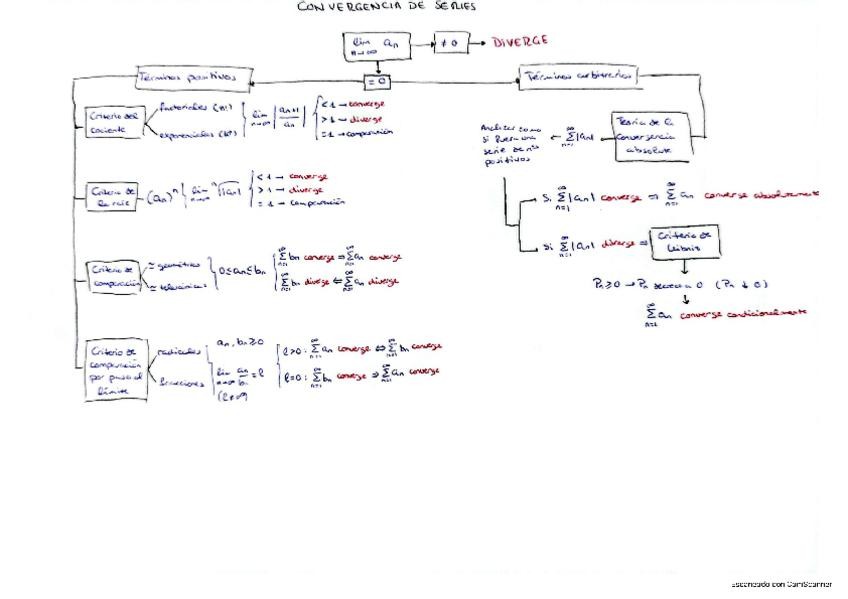 CONVERGENCIA DE SERIES
lim an n→∞ → ≠ 0 → DIVERGE
= 0
Términos positivos
Términos arbitrarios
Criterio del cociente
factoriales (n!)
exponenciales (kⁿ)
lim n→∞ |an+1 / an|
< 1 → converge
> 1 → diverge
= 1 → comparación
Criterio de la raíz → (an)ⁿ
lim n→∞ ⁿ√|an|
< 1 → converge
> 1 → diverge
= 1 → comparación
Criterio de comparación
≈ geométrica
≈ telescópicas
0 ≤ an ≤ bn
∞ Σ n=1 bn converge ⇒ ∞ Σ n=1 an converge
∞ Σ n=1 bn diverge ⇐ ∞ Σ n=1 an diverge
Criterio de comparación por paso al límite
radicales
fracciones
an, bn ≥ 0
lim n→∞ an / bn = l
l > 0 : ∞ Σ n=1 an converge ⇔ ∞ Σ n=1 bn converge
l = 0 : ∞ Σ n=1 bn converge ⇒ ∞ Σ n=1 an converge
Teoría de la convergencia absoluta
← ∞ Σ n=1 |an| ←
Analizar como
si fuera una
serie de nºs
positivos
Si ∞ Σ n=1 |an| converge ⇒ ∞ Σ n=1 an converge absolutamente
Si ∞ Σ n=1 |an| diverge ⇒ Criterio de Leibniz
Pn ≥ 0 → Pn decrece a 0 (Pn ↓ 0)
∞ Σ n=1 an converge condicionalmente
Escaneado con CamScanner